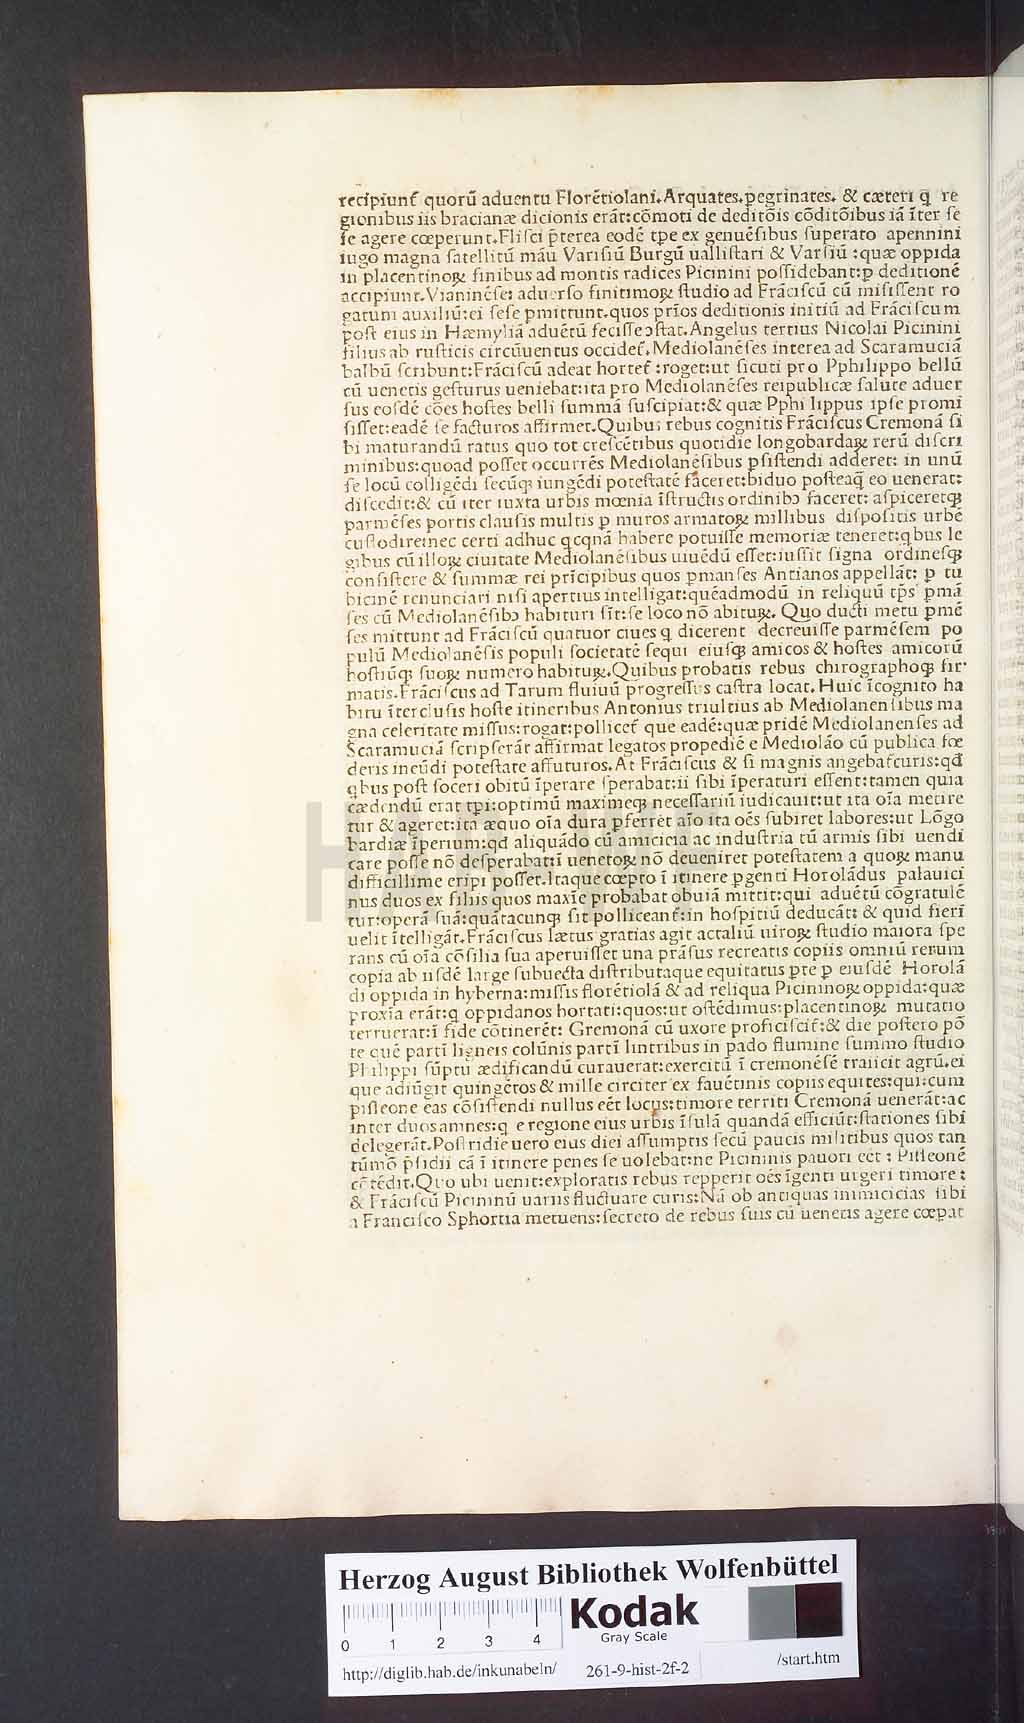 recipiunt̃ quorũ aduentu Florẽtiolani. Arquates. pegrinates. & cæteri q̃ re
gionibus iis bracianæ dicionis erãt: cõmoti de deditõis cõditõibus iã ĩter ſe
ſe agere cœperunt. Fliſci p̃terea eodẽ tp̃e ex genuẽſibus ſuperato apennini
iugo magna ſatellitũ mãu Variſiũ Burgũ ualliſtari & Varſiũ : quæ oppida
in placentinoꝝ finibus ad montis radices Picinini poſſidebant: ꝑ deditionẽ
accipiunt. Vianinẽſes aduerſo finitimoꝝ ſtudio ad Frãciſcũ cũ miſiſſent ro
gatum auxiliũ: ei ſeſe ꝑmittunt. quos prĩos deditionis initiũ ad Frãciſcum
poſt eius in Hæmyliã aduẽtũ feciſſe ↄſtat. Angelus tertius Nicolai Picinini
filius ab ruſticis circũuentus occidet̃. Mediolanẽſes interea ad Scaramuciã
balbũ ſcribunt: Frãciſcũ adeat hortet̃ : roget: ut ſicuti pro Pphilippo bellũ
cũ uenetis geſturus ueniebat: ita pro Mediolanẽſes reipublicæ ſalute aduer
ſus eoſdẽ cões hoſtes belli ſummã ſuſcipiat: & quæ Pphi lippus ipſe promi
ſiſſet: eadẽ ſe facturos affirmet. Quibus rebus cognitis Frãciſcus Cremonã ſi
bi maturandũ ratus quo tot creſcẽtibus quotidie longobardaꝝ rerũ diſcri
minibus: quoad poſſet occurrẽs Mediolanẽſibus ꝑſiſtendi adderet: in unũ
ſe locũ colligẽdi ſecũqꝫ iungẽdi poteſtatẽ faceret: biduo poſteaq̃ eo uenerat:
diſcedit: & cũ iter iuxta urbis mœnia ĩſtructis ordinibↄ faceret: aſpiceretqꝫ
parmẽſes portis clauſis multis ꝑ muros armatoꝝ millibus diſpoſitis urbẽ
cuſtodire: nec certi adhuc qcqnã habere potuiſſe memoriæ teneret: qbus le
gibus cũ illoꝝ ciuitate Mediolanẽſibus uiuẽdũ eſſet: iuſſit ſigna ordineſqꝫ
conſiſtere & ſummæ rei prĩcipibus quos ꝑmanſes Antianos appellãt: ꝑ tu
bicinẽ renunciari niſi apertius intelligat: quẽadmodũ in reliquũ tp̃s ꝑmã
ſes cũ Mediolanẽſibↄ habituri ſĩt: ſe loco nõ abituꝝ. Quo ducti metu ꝑmẽ
ſes mittunt ad Frãciſcũ quatuor ciues q dicerent decreuiſſe parmẽſem po
pulũ Mediolanẽſis populi ſocietatẽ ſequi eiuſqꝫ amicos & hoſtes amicorũ
hoſtiũqꝫ ſuoꝝ numero habituꝝ. Quibus probatis rebus chirographoqꝫ fir
matis. Frãciſcus ad Tarum fluiuũ progreſſus caſtra locat. Huic ĩcognito ha
bitu ĩtercluſis hoſte itineribus Antonius triultius ab Mediolanenſibus ma
gna celeritate miſſus: rogat: pollicet̃ que eadẽ: quæ pridẽ Mediolanenſes ad
Scaramuciã ſcripſerãt affirmat legatos propediẽ e Mediolão cũ publica fœ
deris ineũdi poteſtate affuturos. At Frãciſcus & ſi magnis angebat̃ curis: qd̃
qbus poſt ſoceri obitũ ĩperare ſperabat: ii ſibi ĩperaturi eſſent: tamen quia
cædendũ erat tp̃i: optimũ maximeqꝫ neceſſariũ iudicauit: ut ita oĩa metire
tur & ageret: ita æquo oĩa dura ꝑferret aĩo ita oẽs ſubiret labores: ut Lõgo
bardiæ ĩperium: qd aliquãdo cũ amicicia ac induſtria tũ armis ſibi uendi
care poſſe nõ deſperabat: ĩ uenetoꝝ nõ deueniret poteſtatem a quoꝝ manu
difficillime eripi poſſet. Itaque cœpto ĩ itinere ꝑgenti Horolãdus palauici
nus duos ex filiis quos maxĩe probabat obuiã mittit: qui aduẽtũ cõgratulẽ
tur: operã ſuã: quãtacunqꝫ ſit polliceant̃: in hoſpitiũ deducãt: & quid fieri
uelit ĩtelligãt. Frãciſcus lætus gratias agit actaliũ uiroꝝ ſtudio maiora ſpe
rans cũ oĩa cõſilia ſua aperuiſſet una prãſus recreatis copiis omniũ rerum
copia ab iiſdẽ large ſubuecta diſtributaque equitatus ꝑte ꝑ eiuſdẽ Horolã
di oppida in hyberna: miſſis florẽtiolã & ad reliqua Picininoꝝ oppida: quæ
proxĩa erãt: q oppidanos hortati: quos: ut oſtẽdimus: placentinoꝝ mutatio
terruerat: ĩ fide cõtinerẽt: Gremonã cũ uxore proficiſcit̃: & die poſtero põ
te quẽ partĩ ligneis colũnis partĩ lintribus in pado flumine ſummo ſtudio
Philippi ſũptu ædificandũ curauerat: exercitũ ĩ cremonẽſẽ traiicit agrũ. ei
que adiũgit quingẽtos & mille circiter ex fauẽtinis copiis equites: qui: cum
piſleone eas cõſiſtendi nullus eẽt locus: timore territi Cremonã uenerãt: ac
inter duos amnes: q e regione eius urbis ĩſulã quandã efficiũt: ſtationes ſibi
delegerãt. Poſtridie uero eius diei aſſumptis ſecũ paucis militibus quos tan
tũmõ p̃ſidii cã ĩ itinere penes ſe uolebat: ne Picininis pauori eẽt : Piſleonẽ
cõtẽdit. Quo ubi uenit: exploratis rebus repperit oẽs ĩgenti urgeri timore:
& Frãciſcũ Picininũ uariis fluctuare curis: Nã ob antiquas inimicicias ſibi
a Franciſco Sphortia metuens: ſecreto de rebus ſuis cũ uenetis agere cœpat
HAB WF
Herzog August Bibliothek Wolfenbüttel
0 1 2 3 4
Kodak
Gray Scale
http://diglib.hab.de/inkunabeln/ 261-9-hist-2f-2 /start.htm